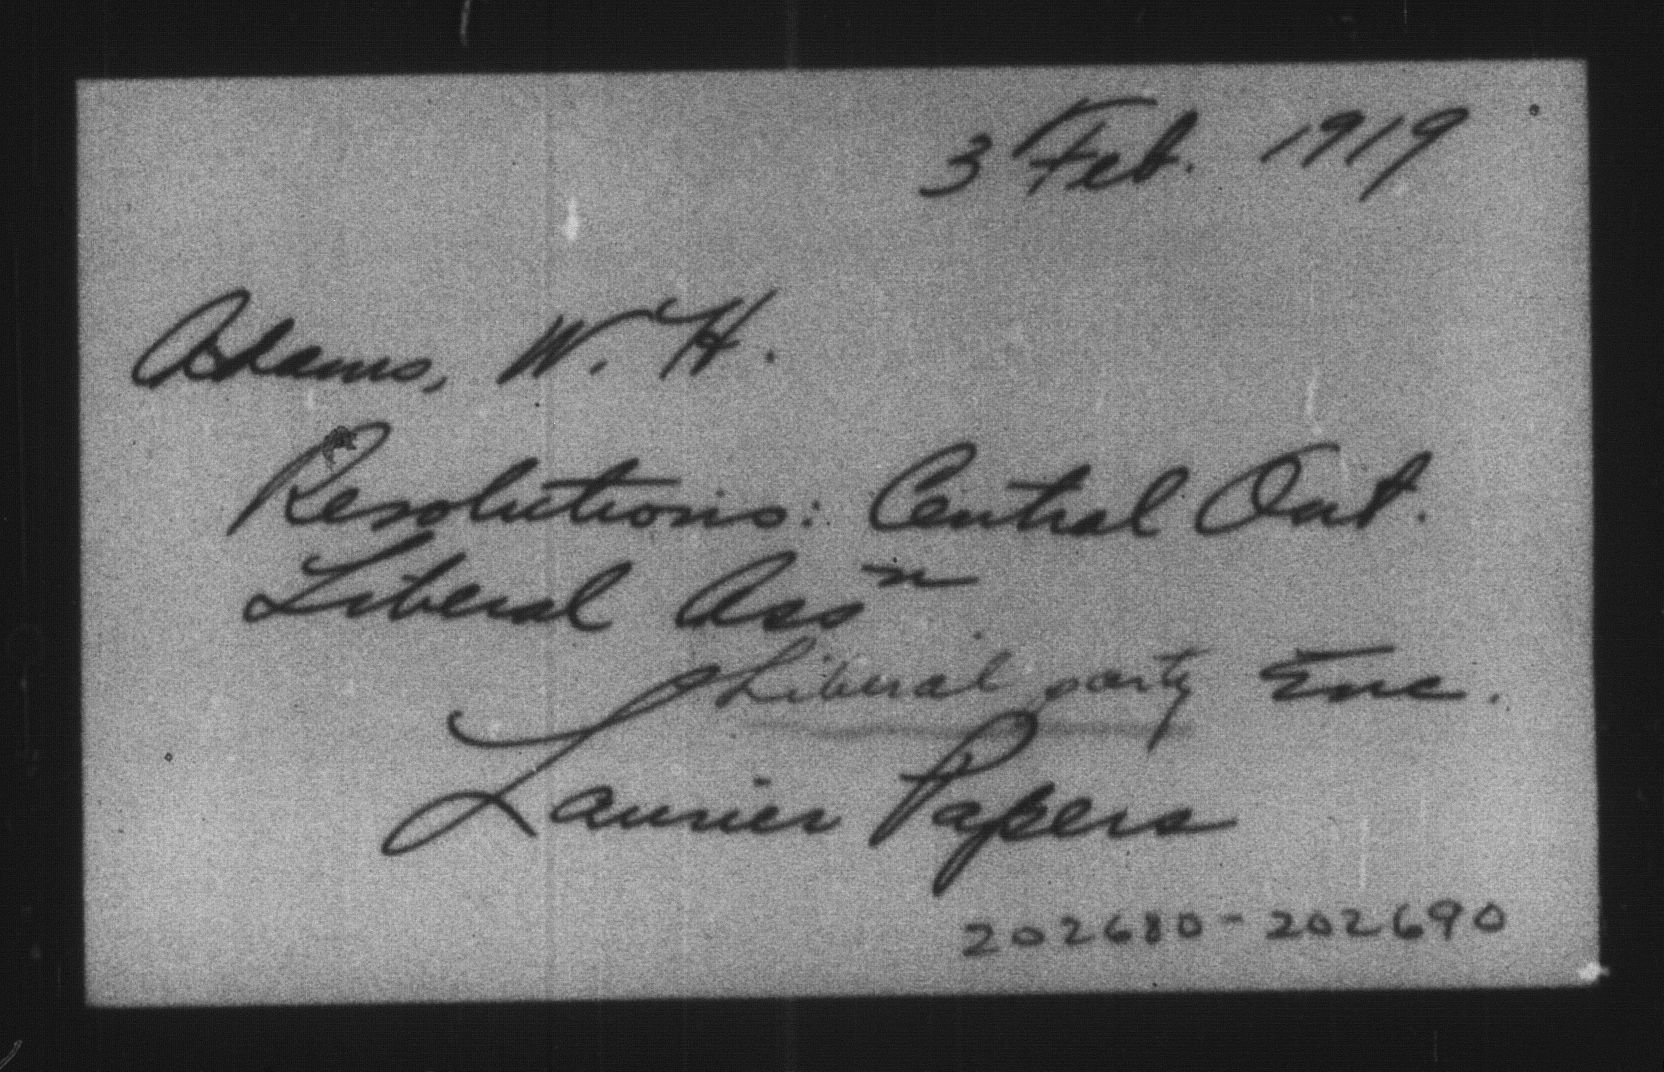 3 Feb. 1919
Adams, W. H.
Resolutions: Central Ont.
Liberal Assn
Liberal party Enc.
Laurier Papers
202680-202690